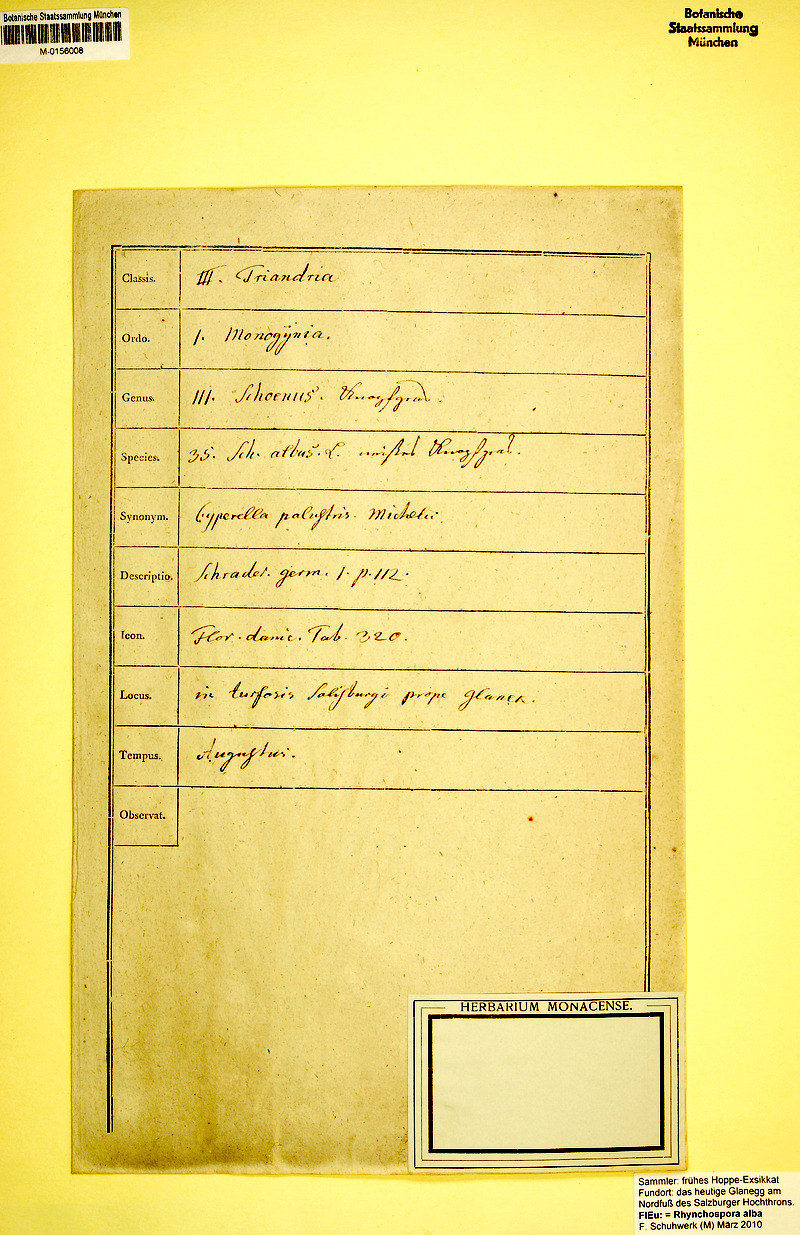 Botanische Staatssammlung München
M-0156008
Botanische
Staatssammlung
München
Classis. III. Triandria
Ordo. 1. Monogÿnia.
Genus. III. Schoenus. Knopfgras.
Species. 35. Sch. albus. L. weißes Knopfgras.
Synonym. Cyperella palustris. Michelii.
Descriptio. Schrader. germ. 1. p. 112.
Icon. Flor. danic. Tab. 320.
Locus. in turfosis Salisburgi prope Glaneck.
Tempus. Augustus.
Observat.
HERBARIUM MONACENSE.
Sammler: frühes Hoppe-Exsikkat
Fundort: das heutige Glanegg am
Nordfuß des Salzburger Hochthrons.
FlEu: = Rhynchospora alba
F. Schuhwerk (M) März 2010